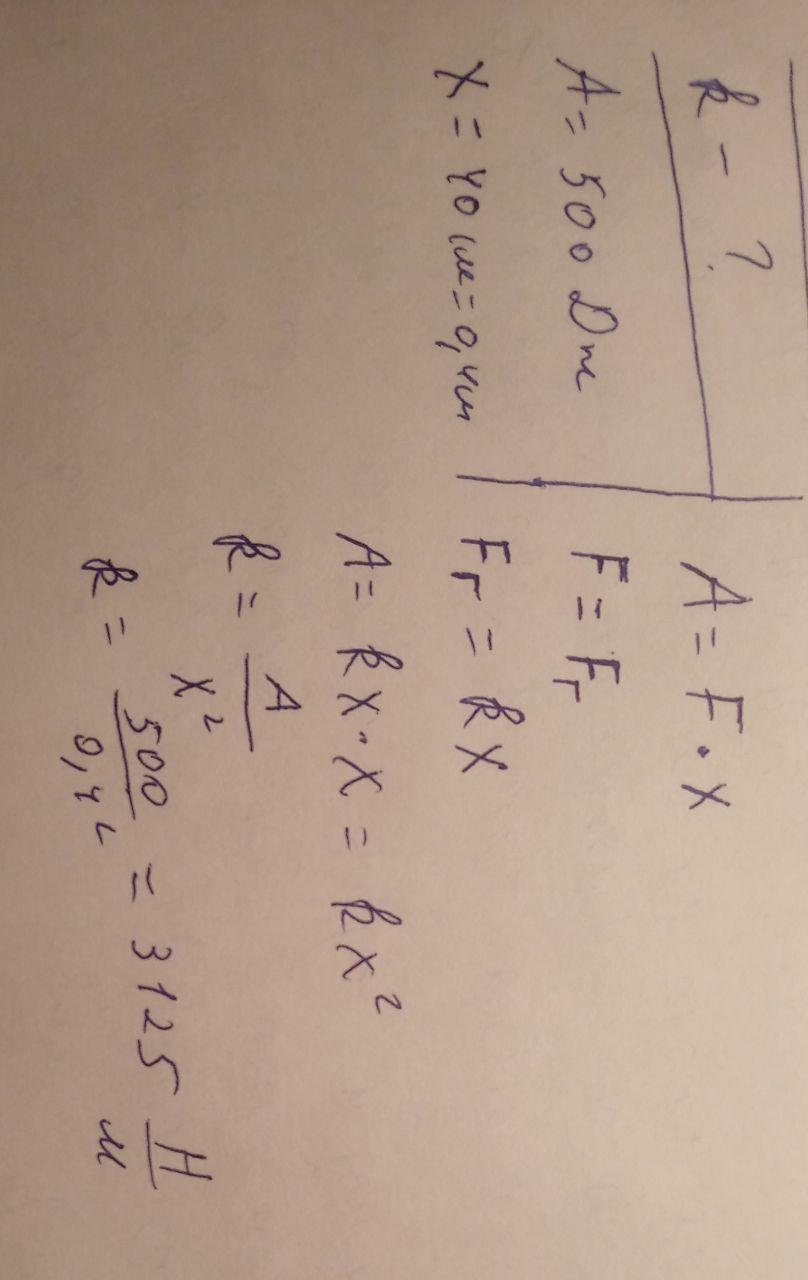 k - ?
A = 500 Dж
x = 40 см = 0,4м
A = F · x
F = Fг
Fг = kx
A = kx · x = kx²
k = A/x²
k = 500/0,4² = 3125 Н/м